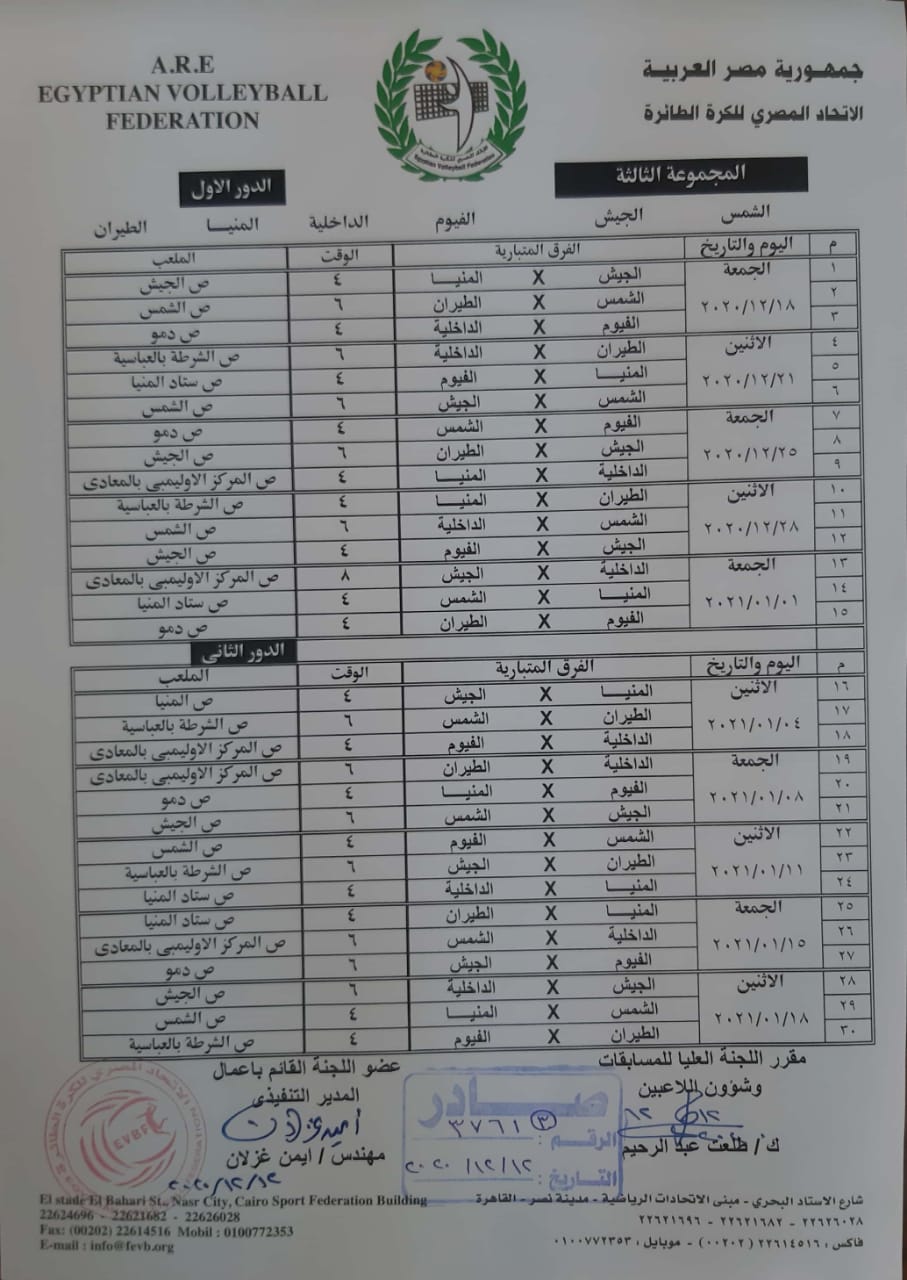 A.R.E
EGYPTIAN VOLLEYBALL
FEDERATION
جمهورية مصر العربية
الاتحاد المصري للكرة الطائرة
Egyptian Volleyball Federation
المجموعة الثالثة
الدور الاول
الشمس الجيش الفيوم الداخلية المنيــا الطيران
م اليوم والتاريخ الفرق المتبارية الوقت الملعب
١ الجمعة ٢٠٢٠/١٢/١٨ الجيش X المنيــا ٤ ص الجيش
٢ الشمس X الطيران ٦ ص الشمس
٣ الفيوم X الداخلية ٤ ص دمو
٤ الاثنين ٢٠٢٠/١٢/٢١ الطيران X الداخلية ٦ ص الشرطة بالعباسية
٥ المنيــا X الفيوم ٤ ص ستاد المنيا
٦ الشمس X الجيش ٦ ص الشمس
٧ الجمعة ٢٠٢٠/١٢/٢٥ الفيوم X الشمس ٤ ص دمو
٨ الجيش X الطيران ٦ ص الجيش
٩ الداخلية X المنيــا ٤ ص المركز الاوليمبى بالمعادى
١٠ الاثنين ٢٠٢٠/١٢/٢٨ الطيران X المنيــا ٤ ص الشرطة بالعباسية
١١ الشمس X الداخلية ٦ ص الشمس
١٢ الجيش X الفيوم ٤ ص الجيش
١٣ الجمعة ٢٠٢١/٠١/٠١ الداخلية X الجيش ٨ ص المركز الاوليمبى بالمعادى
١٤ المنيــا X الشمس ٤ ص ستاد المنيا
١٥ الفيوم X الطيران ٤ ص دمو
الدور الثانى
م اليوم والتاريخ الفرق المتبارية الوقت الملعب
١٦ الاثنين ٢٠٢١/٠١/٠٤ المنيــا X الجيش ٤ ص المنيا
١٧ الطيران X الشمس ٦ ص الشرطة بالعباسية
١٨ الداخلية X الفيوم ٤ ص المركز الاوليمبى بالمعادى
١٩ الجمعة ٢٠٢١/٠١/٠٨ الداخلية X الطيران ٦ ص المركز الاوليمبى بالمعادى
٢٠ الفيوم X المنيــا ٤ ص دمو
٢١ الجيش X الشمس ٦ ص الجيش
٢٢ الاثنين ٢٠٢١/٠١/١١ الشمس X الفيوم ٤ ص الشمس
٢٣ الطيران X الجيش ٦ ص الشرطة بالعباسية
٢٤ المنيــا X الداخلية ٤ ص ستاد المنيا
٢٥ الجمعة ٢٠٢١/٠١/١٥ المنيــا X الطيران ٤ ص ستاد المنيا
٢٦ الداخلية X الشمس ٦ ص المركز الاوليمبى بالمعادى
٢٧ الفيوم X الجيش ٦ ص دمو
٢٨ الاثنين ٢٠٢١/٠١/١٨ الجيش X الداخلية ٦ ص الجيش
٢٩ الشمس X المنيــا ٤ ص الشمس
٣٠ الطيران X الفيوم ٤ ص الشرطة بالعباسية
مقرر اللجنة العليا للمسابقات
وشؤون اللاعبين
ك / طلعت عبد الرحيم
صـــادر
الرقم : ٣٧٦١ ٣
التاريخ : ٢٠٢٠/١٢/١٢
عضو اللجنة القائم باعمال
المدير التنفيذى
مهندس / ايمن غزلان
٢٠٢٠/١٢/١٢
EVBF
El stade El Bahari St., Nasr City, Cairo Sport Federation Building
22624696 - 22621682 - 22626028
Fax: (00202) 22614516 Mobil : 0100772353
E-mail : info@fevb.org
شارع الاستاد البحري - مبنى الاتحادات الرياضية - مدينة نصر - القاهرة
٢٢٦٢٦٠٢٨ - ٢٢٦٢١٦٨٢ - ٢٢٦٢١٦٩٦
فاكس : ٢٢٦١٤٥١٦ (٠٠٢٠٢) - موبايل : ٠١٠٠٧٧٢٣٥٣